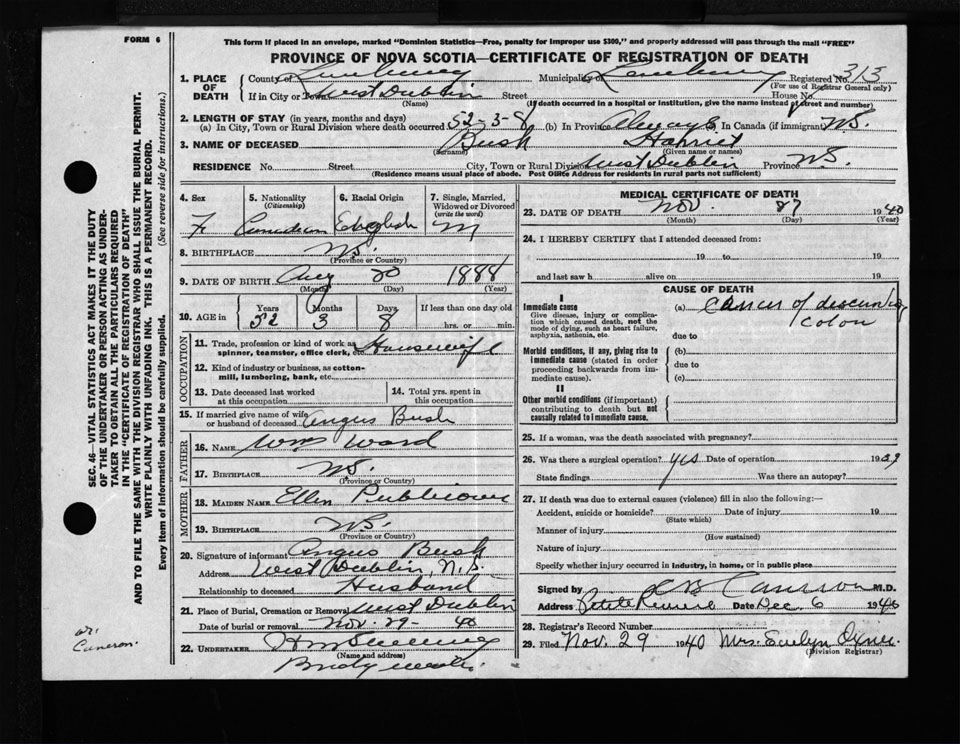 FORM 6
This form if placed in an envelope, marked "Dominion Statistics—Free, penalty for improper use $300," and properly addressed will pass through the mail "FREE"
PROVINCE OF NOVA SCOTIA—CERTIFICATE OF REGISTRATION OF DEATH
1. PLACE OF DEATH
County of Lunenburg Municipality of Lunenburg Registered No. 313
(For use of Registrar General only)
If in City or Town West Dublin Street House No.
(If death occurred in a hospital or institution, give the name instead of street and number)
2. LENGTH OF STAY (in years, months and days)
(a) In City, Town or Rural Division where death occurred 52-3-8 (b) In Province Always In Canada (if immigrant) N.S.
3. NAME OF DECEASED Bush Harriet
(Surname) (Given name or names)
RESIDENCE No. Street City, Town or Rural Division West Dublin Province N.S.
(Residence means usual place of abode. Post Office Address for residents in rural parts not sufficient)
4. Sex
F
5. Nationality
(Citizenship)
Canadian
6. Racial Origin
English
7. Single, Married, Widowed or Divorced
(write the word)
M
8. BIRTHPLACE N.S.
(Province or Country)
9. DATE OF BIRTH Aug 20 1888
(Month) (Day) (Year)
10. AGE in
Years Months Days If less than one day old
52 3 8 hrs. or min.
OCCUPATION
11. Trade, profession or kind of work as spinner, teamster, office clerk, etc. Housewife
12. Kind of industry or business, as cotton-mill, lumbering, bank, etc.
13. Date deceased last worked at this occupation
14. Total yrs. spent in this occupation
15. If married give name of wife or husband of deceased Angus Bush
FATHER
16. NAME Wm Ward
17. BIRTHPLACE N.S.
(Province or Country)
MOTHER
18. MAIDEN NAME Ellen Publicover
19. BIRTHPLACE N.S.
(Province or Country)
20. Signature of informant Angus Bush
Address West Dublin, N.S.
Relationship to deceased Husband
21. Place of Burial, Cremation or Removal West Dublin
Date of burial or removal Nov. 29 - 40
22. UNDERTAKER
(Name and address)
MEDICAL CERTIFICATE OF DEATH
23. DATE OF DEATH Nov. 1940
(Month) (Day) (Year)
24. I HEREBY CERTIFY that I attended deceased from:
19 to 19
and last saw h alive on 19
CAUSE OF DEATH
I
Immediate cause
Give disease, injury or complication which caused death, not the mode of dying, such as heart failure, asphyxia, asthenia, etc.
(a) Cancer of descending
Colon
due to
Morbid conditions, if any, giving rise to immediate cause (stated in order proceeding backwards from immediate cause).
(b)
due to
(c)
II
Other morbid conditions (if important) contributing to death but not causally related to immediate cause.
25. If a woman, was the death associated with pregnancy?
26. Was there a surgical operation? yes Date of operation 1939
State findings Was there an autopsy?
27. If death was due to external causes (violence) fill in also the following:—
Accident, suicide or homicide? Date of injury 19
(State which)
Manner of injury
(How sustained)
Nature of injury
Specify whether injury occurred in industry, in home, or in public place
Signed by Cameron M.D.
Address Petite Riviere Date Dec. 6 1940
28. Registrar's Record Number
29. Filed Nov. 29 1940 Mrs. Evelyn Oxner
(Division Registrar)
SEC. 46—VITAL STATISTICS ACT MAKES IT THE DUTY
OF THE UNDERTAKER OR PERSON ACTING AS UNDER-
TAKER TO OBTAIN ALL THE PARTICULARS REQUIRED
IN THE "CERTIFICATE OF REGISTRATION OF DEATH"
AND TO FILE THE SAME WITH THE DIVISION REGISTRAR WHO SHALL ISSUE THE BURIAL PERMIT.
WRITE PLAINLY WITH UNFADING INK. THIS IS A PERMANENT RECORD.
Every item of information should be carefully supplied. (See reverse side for instructions.)
Dr.
Cameron.